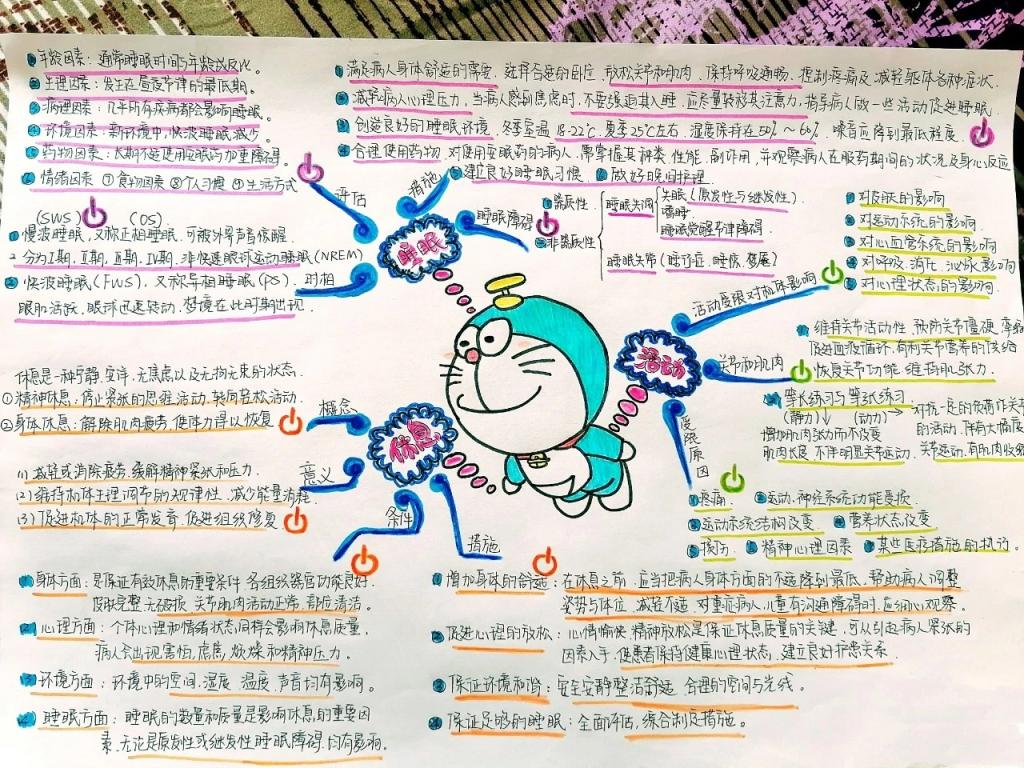 ①年龄因素：通常睡眠时间与年龄成反比。
②生理因素：发生在昼夜节律的最低期。
③病理因素：几乎所有疾病都会影响睡眠
④环境因素：新环境中，快波睡眠减少
⑤药物因素：长期不适使用安眠药加重障碍。
⑥情绪因素 ⑦食物因素 ⑧个人习惯 ⑨生活方式
评估
①满足病人身体舒适的需要，选择合适的卧位，放松关节和肌肉，保持呼吸通畅，控制疾病及减轻躯体各种症状
②减轻病人心理压力，当病人感到焦虑时，不要强迫其入睡，应尽量转移其注意力，指导病人做一些活动促进睡眠
③创造良好的睡眠环境，冬季室温18-22℃，夏季25℃左右，湿度保持在50%～60%，噪音应降到最低程度。
④合理使用药物，对使用安眠药的病人，需掌握其种类，性能，副作用，并观察病人在服药期间的状况及身心反应
⑤建立良好睡眠习惯 ⑥做好晚间护理
措施
睡眠
睡眠障碍
①器质性
②非器质性
睡眠失调
失眠（原发性与继发性）
嗜睡
睡眠觉醒节律障碍
睡眠失常
(SWS) (OS)
①慢波睡眠，又称正相睡眠，可被外界声音惊醒
分为I期，II期，III期，IV期，非快速眼球运动睡眠(NREM)
②快波睡眠(FWS)，又称异相睡眠(PS)，
眼肌活跃，眼球迅速转动，梦境在此时期出现。
时相
活动
活动受限对机体影响
①对皮肤的影响
②对运动系统的影响
③对心血管系统的影响
④对呼吸，消化，泌尿影响
⑤对心理状态的影响。
关节和肌肉
维持关节活动性，预防关节僵硬
促进血液循环，有利关节营养的供给
恢复关节功能，维持肌张力
等长练习与等张练习
(静力) (动力)→对抗一定的负荷作关节
增加肌肉张力而不改变 的活动，伴有大幅度
肌肉长度，不伴明显关节运动 关节运动，有肌肉收缩
受限原因
①疼痛 ②运动，神经系统功能受损
③运动系统结构改变 ④营养状态改变
⑤损伤 ⑥精神心理因素 ⑦某些医疗措施的执行。
休息
概念
休息是一种宁静，安详，无焦虑以及无拘无束的状态。
①精神休息：停止紧张的思维活动，转向轻松活动。
②身体休息：解除肌肉疲劳，使体力得以恢复
意义
(1)减轻或消除疲劳，缓解精神紧张和压力.
(2)维持机体生理调节的规律性，减少能量消耗
(3)促进机体的正常发育，促进组织修复
条件
①身体方面：是保证有效休息的重要条件，各组织器官功能良好，
皮肤完整，无破损，关节肌肉活动正常，部位清洁。
②心理方面：个体心理和情绪状态同样会影响休息质量，
病人会出现害怕，焦虑，烦燥和精神压力。
③环境方面：环境中的空间，湿度，温度，声音均有影响。
④睡眠方面：睡眠的数量和质量是影响休息的重要因
素，无论是原发性或继发性睡眠障碍，均有影响。
措施
①增加身体的舒适：在休息之前，应当把病人身体方面的不适降到最低，帮助病人调整
姿势与体位，减轻不适，对重症病人，儿童有沟通障碍时，应细心观察。
②促进心理的放松：心情愉快，精神放松是保证休息质量的关键，可从引起病人紧张的
因素入手，使患者保持健康心理状态，建立良好护患关系.
③保证环境和谐：安全安静整洁舒适，合理的空间与光线。
④保证足够的睡眠：全面评估，综合制定措施。